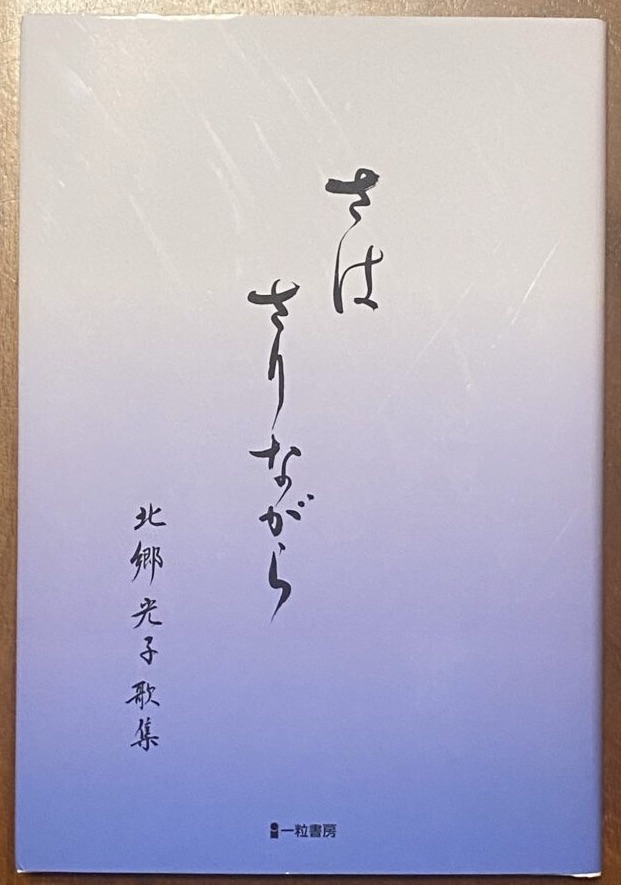 さは
さりながら
北郷光子歌集
一粒書房